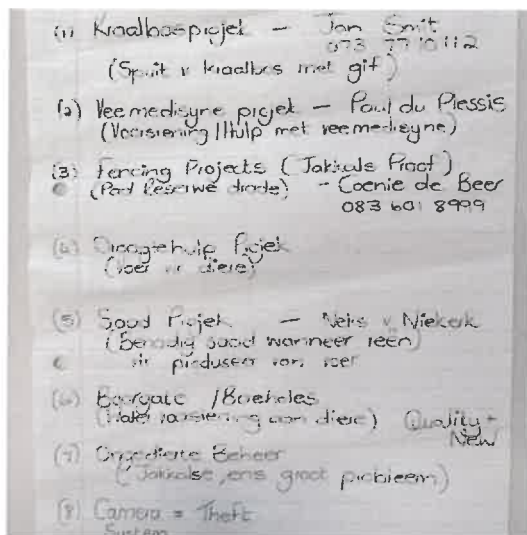 (1) Kraalbosprojek – Jan Smit
073 7710112
(Spuit v kraalbos met gif)
(2) Veemedisyne projek – Paul du Plessis
(Voorsiening / Hulp met veemedisyne)
(3) Fencing Projects (Jakkals Proof)
(Pad Reserwe drade) – Coenie de Beer
083 601 8999
(4) Droogtehulp Projek
(Voer vir diere)
(5) Saad Projek – Nels v. Niekerk
(Benodig saad wanneer reën)
vir produseer van voer
(6) Boorgate / Boreholes
(Water voorsiening aan diere) Quality +
New
(7) Ongedierte Beheer
(Jakkalse, ens groot probleem)
(8) Camera = Theft
System